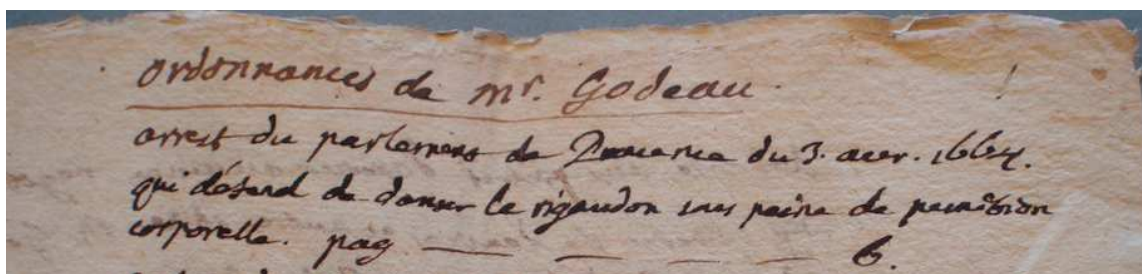 ordonnances de mr. Godeau.
arrest du parlement de Provence du 3. avr. 1664.
qui défend de danser le rigaudon sous peine de punition
corporelle. pag — — — — 6.